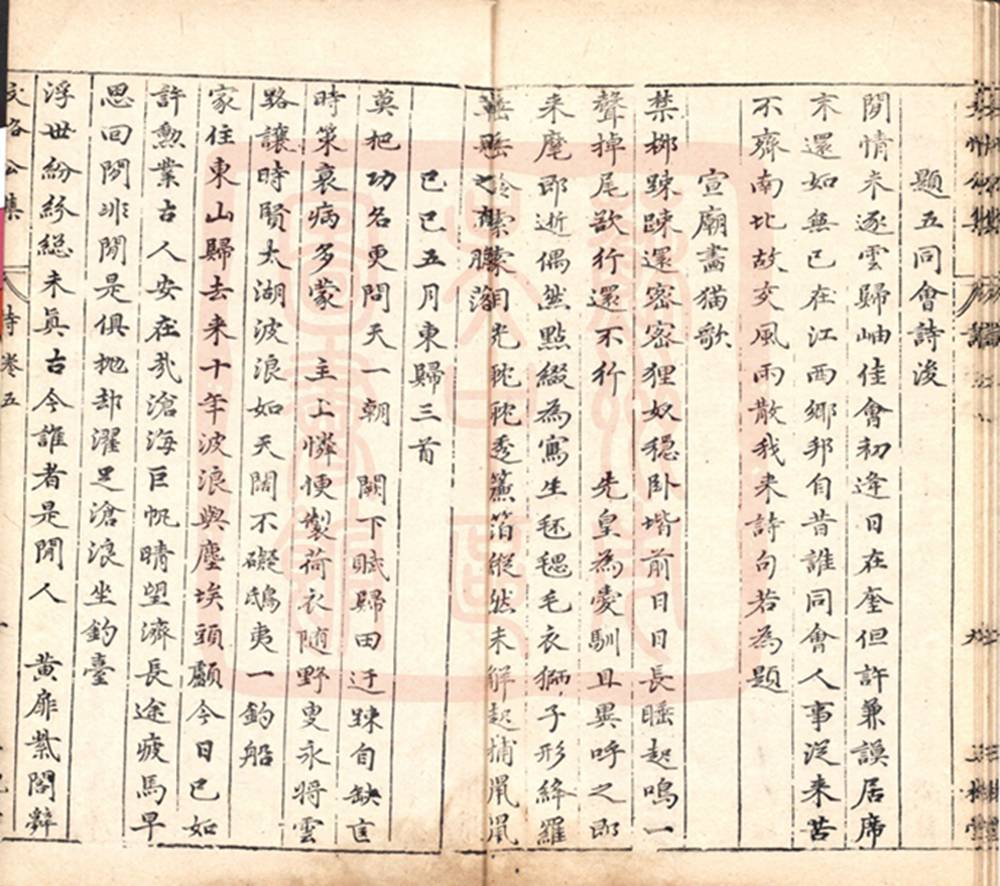 題五同會詩後
閒情未逐雲歸岫佳會初逢日在奎但許兼謨居席
末還如無已在江西鄉邦自昔誰同會人事從來苦
不齊南北故交風雨散我來詩句若為題
宣廟畫猫歌
禁柳踈踈還密密狸奴穩卧堦前日日長睡起鳴一
聲掉尾欲行還不行 先皇為愛馴且異呼之即
来麾即逝偶然點綴為寫生毛衣獅子形絳羅
之目光眈眈透簾箔縱然未解起捕鼠鼠
己巳五月東歸三首
莫把功名更問天一朝 闕下賦歸田迂踈自缺匡
時策衰病多蒙 主上憐便製荷衣随野叟永將雲
路讓時賢太湖波浪如天闊不礙鴟夷一釣船
家住東山歸去来十年波浪與塵埃頭顱今日已如
許勳業古人安在哉滄海巨帆晴望濟長途疲馬早
思回閙非閒是俱抛却濯足滄浪坐釣臺
浮世紛紛総未真古今誰者是閒人 黄扉紫閣辭
文恪公集 詩卷五